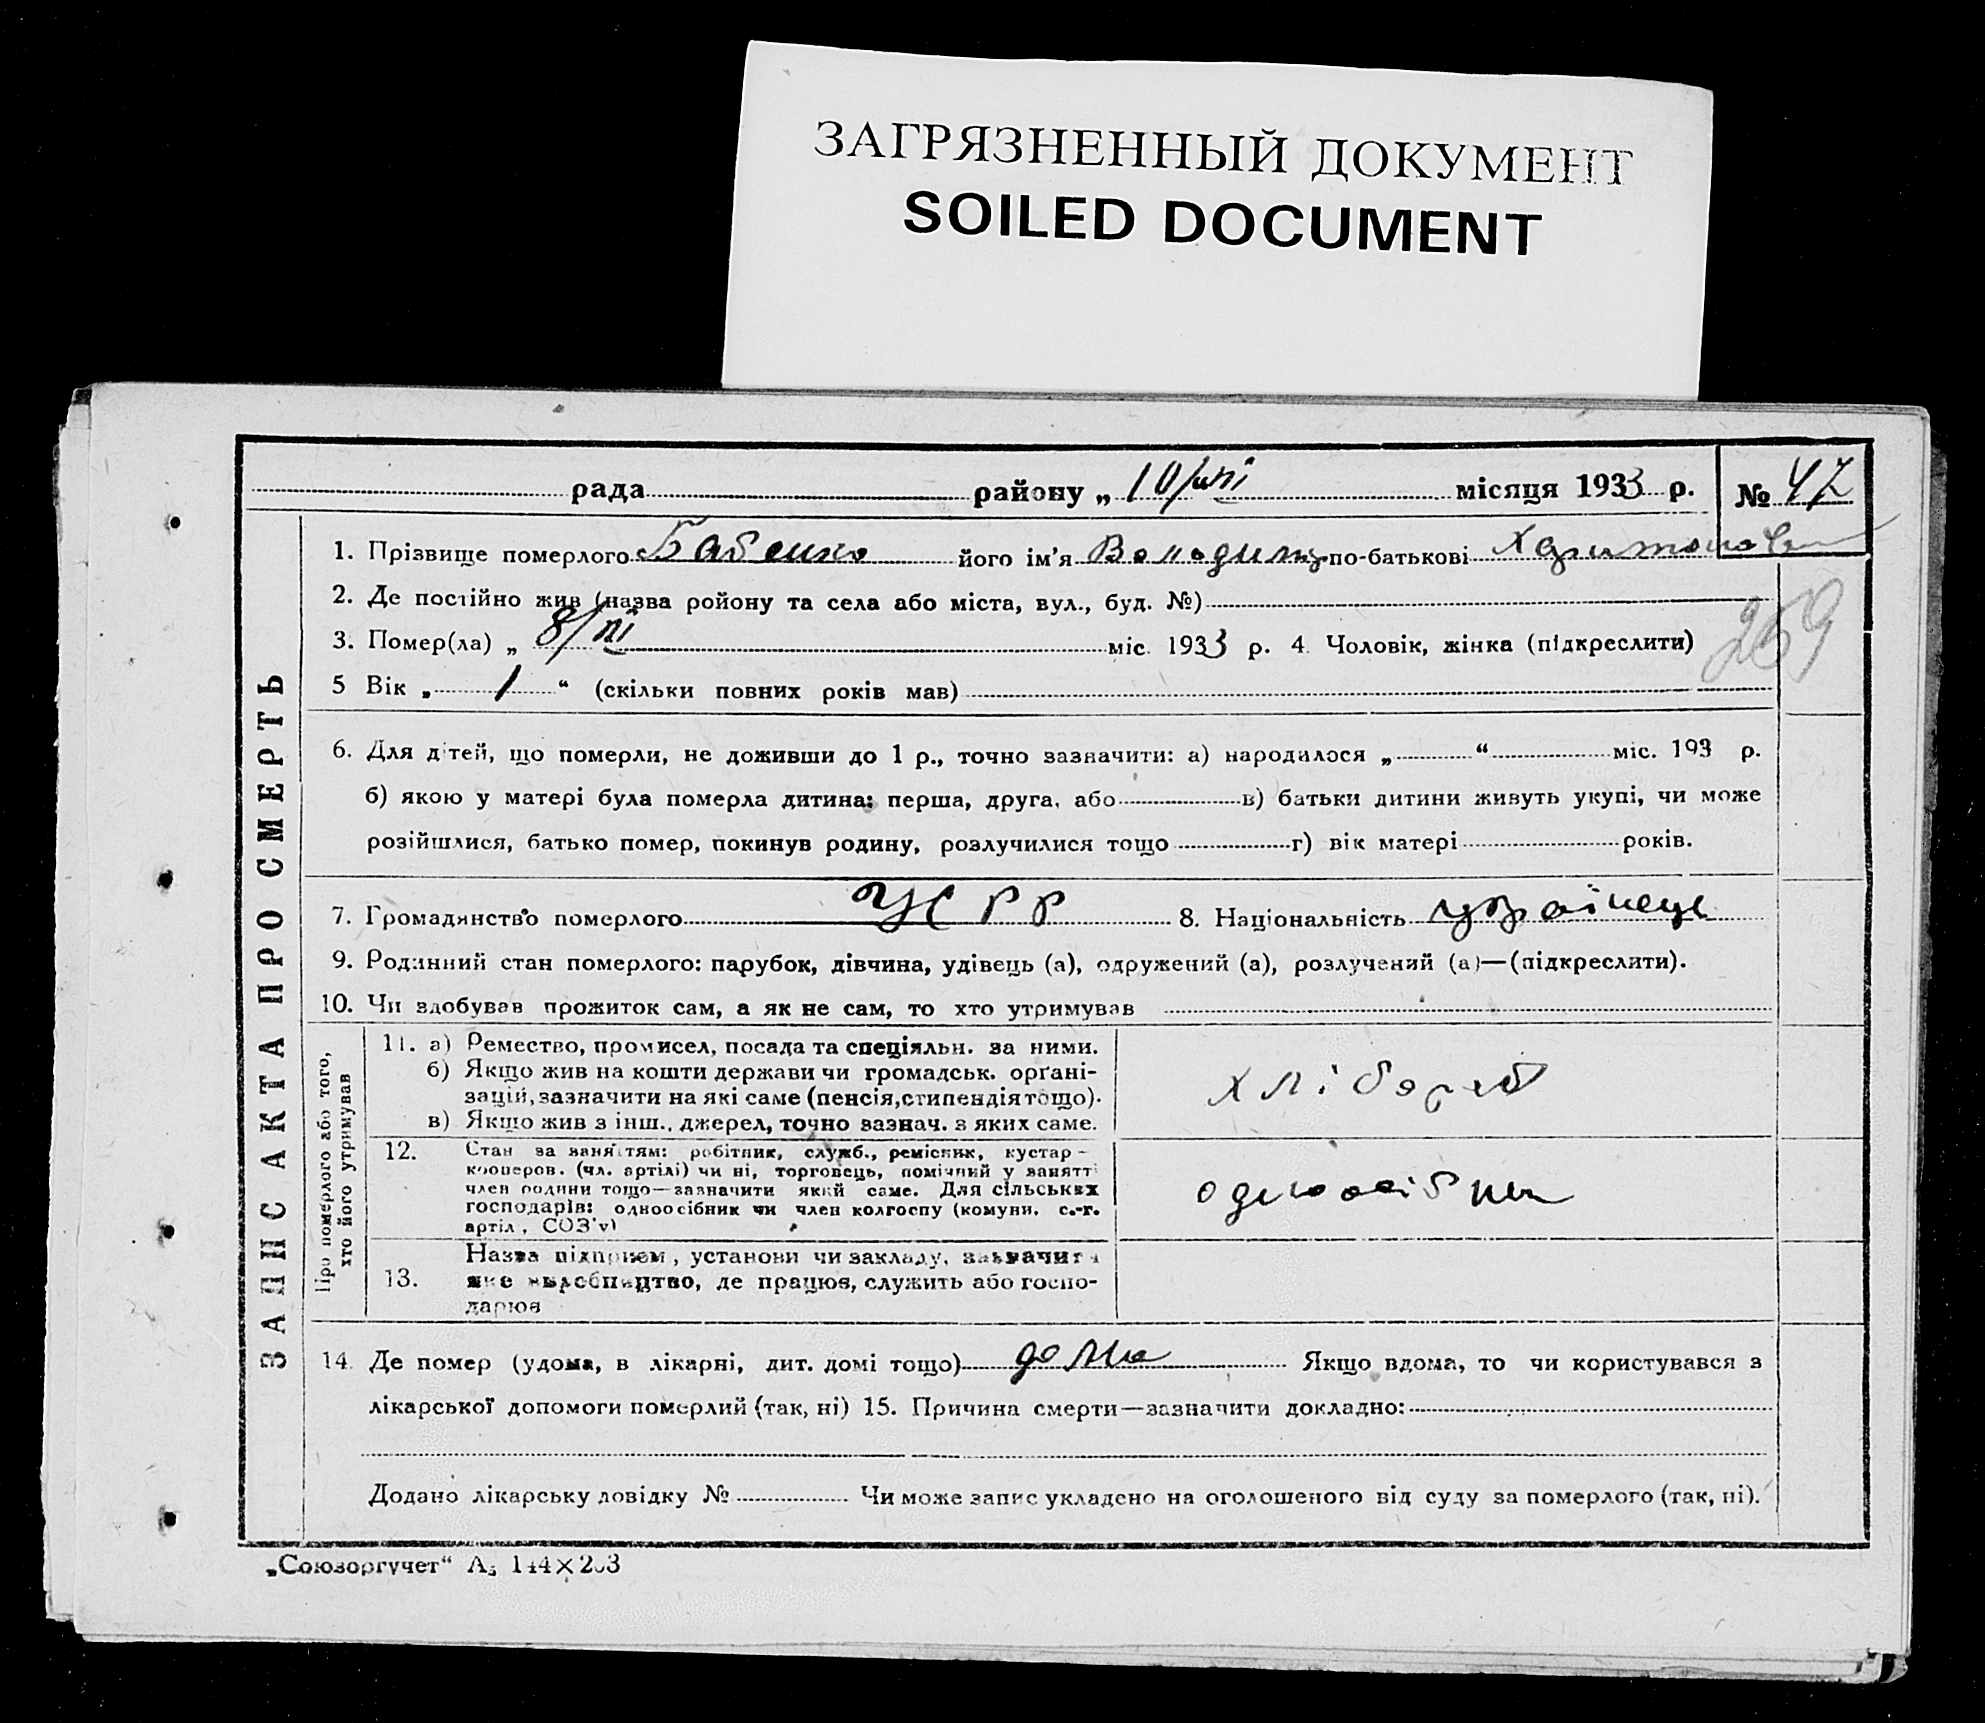 ЗАГРЯЗНЕННЫЙ ДОКУМЕНТ
SOILED DOCUMENT
рада району „ 10/ місяця 1933 р. № 47
1. Прізвище померлого Бабенко його ім'я Володимир по-батькові Харитонович
2. Де постійно жив (назва ройону та села або міста, вул., буд. №)
3. Помер(ла) „ 8/ міс. 1933 р. 4. Чоловік, жінка (підкреслити)
269
5 Вік „ 1 “ (скільки повних років мав)
6. Для дітей, що померли, не доживши до 1 р., точно зазначити: а) народилося „ “ міс. 193 р.
б) якою у матері була померла дитина: перша, друга, або в) батьки дитини живуть укупі, чи може
розійшлися, батько помер, покинув родину, розлучилися тощо г) вік матері років.
7. Громадянство померлого УСРР 8. Національність українець
9. Родинний стан померлого: парубок, дівчина, удівець (а), одружений (а), розлучений (а)—(підкреслити).
10. Чи здобував прожиток сам, а як не сам, то хто утримував
Про померлого або того,
хто його утримував
11. а) Ремество, промисел, посада та спеціяльн. за ними.
б) Якщо жив на кошти держави чи громадськ. орґані-
зацій, зазначити на які саме (пенсія, стипендія тощо).
в) Якщо жив з інш., джерел, точно зазнач. з яких саме.
хлібороб
12. Стан за заняттям: робітник, служб., ремісник, кустар-
кооперов. (чл. артілі) чи ні, торговець, помічний у занятті
член родини тощо—зазначити який саме. Для сільських
господарів: одноосібник чи член колгоспу (комуни, с.-г.
артіл., СОЗ'у)
одноосібник
13. Назва підприєм., установи чи закладу, зазначити
яке виробництво, де працює, служить або госпо-
дарює
14. Де помер (удома, в лікарні, дит. домі тощо) дома Якщо вдома, то чи користувався з
лікарської допомоги померлий (так, ні) 15. Причина смерти—зазначити докладно:
Додано лікарську довідку № Чи може запис укладено на оголошеного від суду за померлого (так, ні).
ЗАПИС АКТА ПРО СМЕРТЬ
„Союзоргучет“ А5 144×203